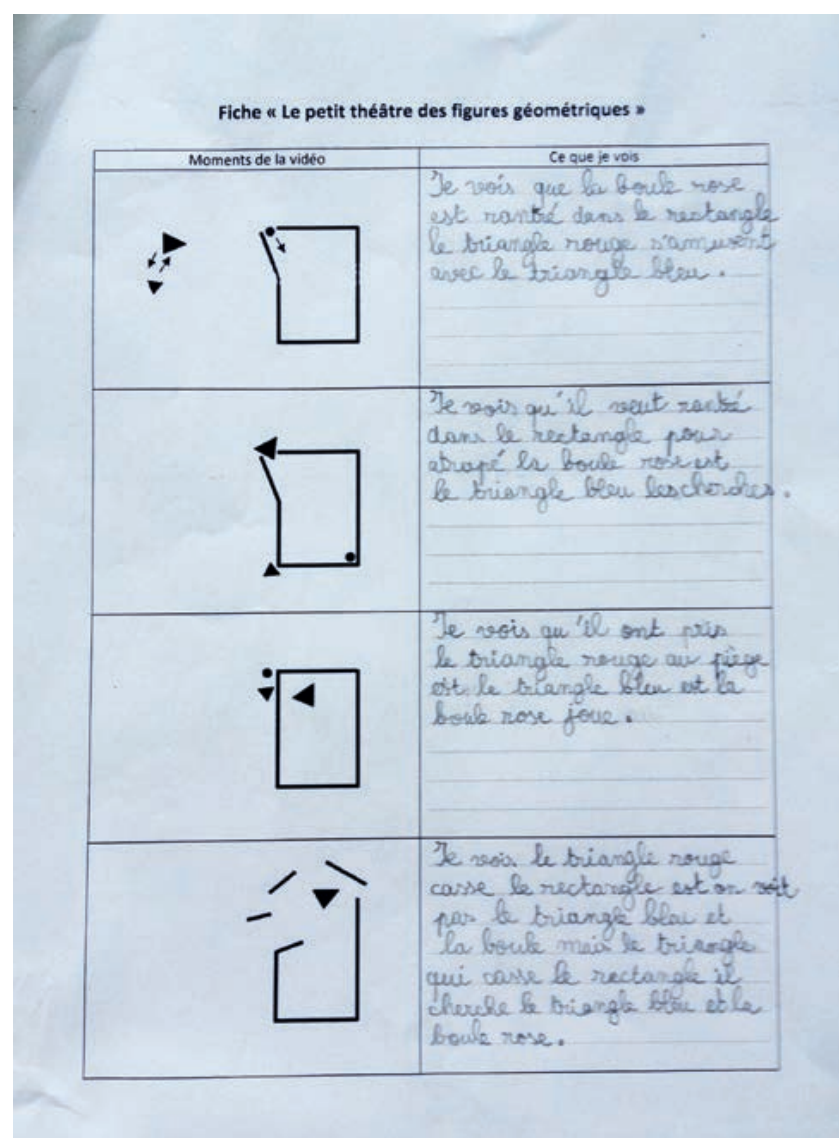 Fiche « Le petit théâtre des figures géométriques »
Moments de la vidéo
Ce que je vois
Je vois que la boule rose
est rantré dans le rectangle
le triangle rouge s'amusent
avec le triangle bleu.
Je vois qu'il veut rantré
dans le rectangle pour
atrapé la boule rose est
le triangle bleu lescherches.
Je vois qu'il ont pris
le triangle rouge au piège
est le triangle bleu est la
boule rose joue.
Je vois le triangle rouge
casse le rectangle est on voit
pas le triangle bleu et
la boule mais le triangle
qui casse le rectangle il
cherche le triangle bleu et la
boule rose.